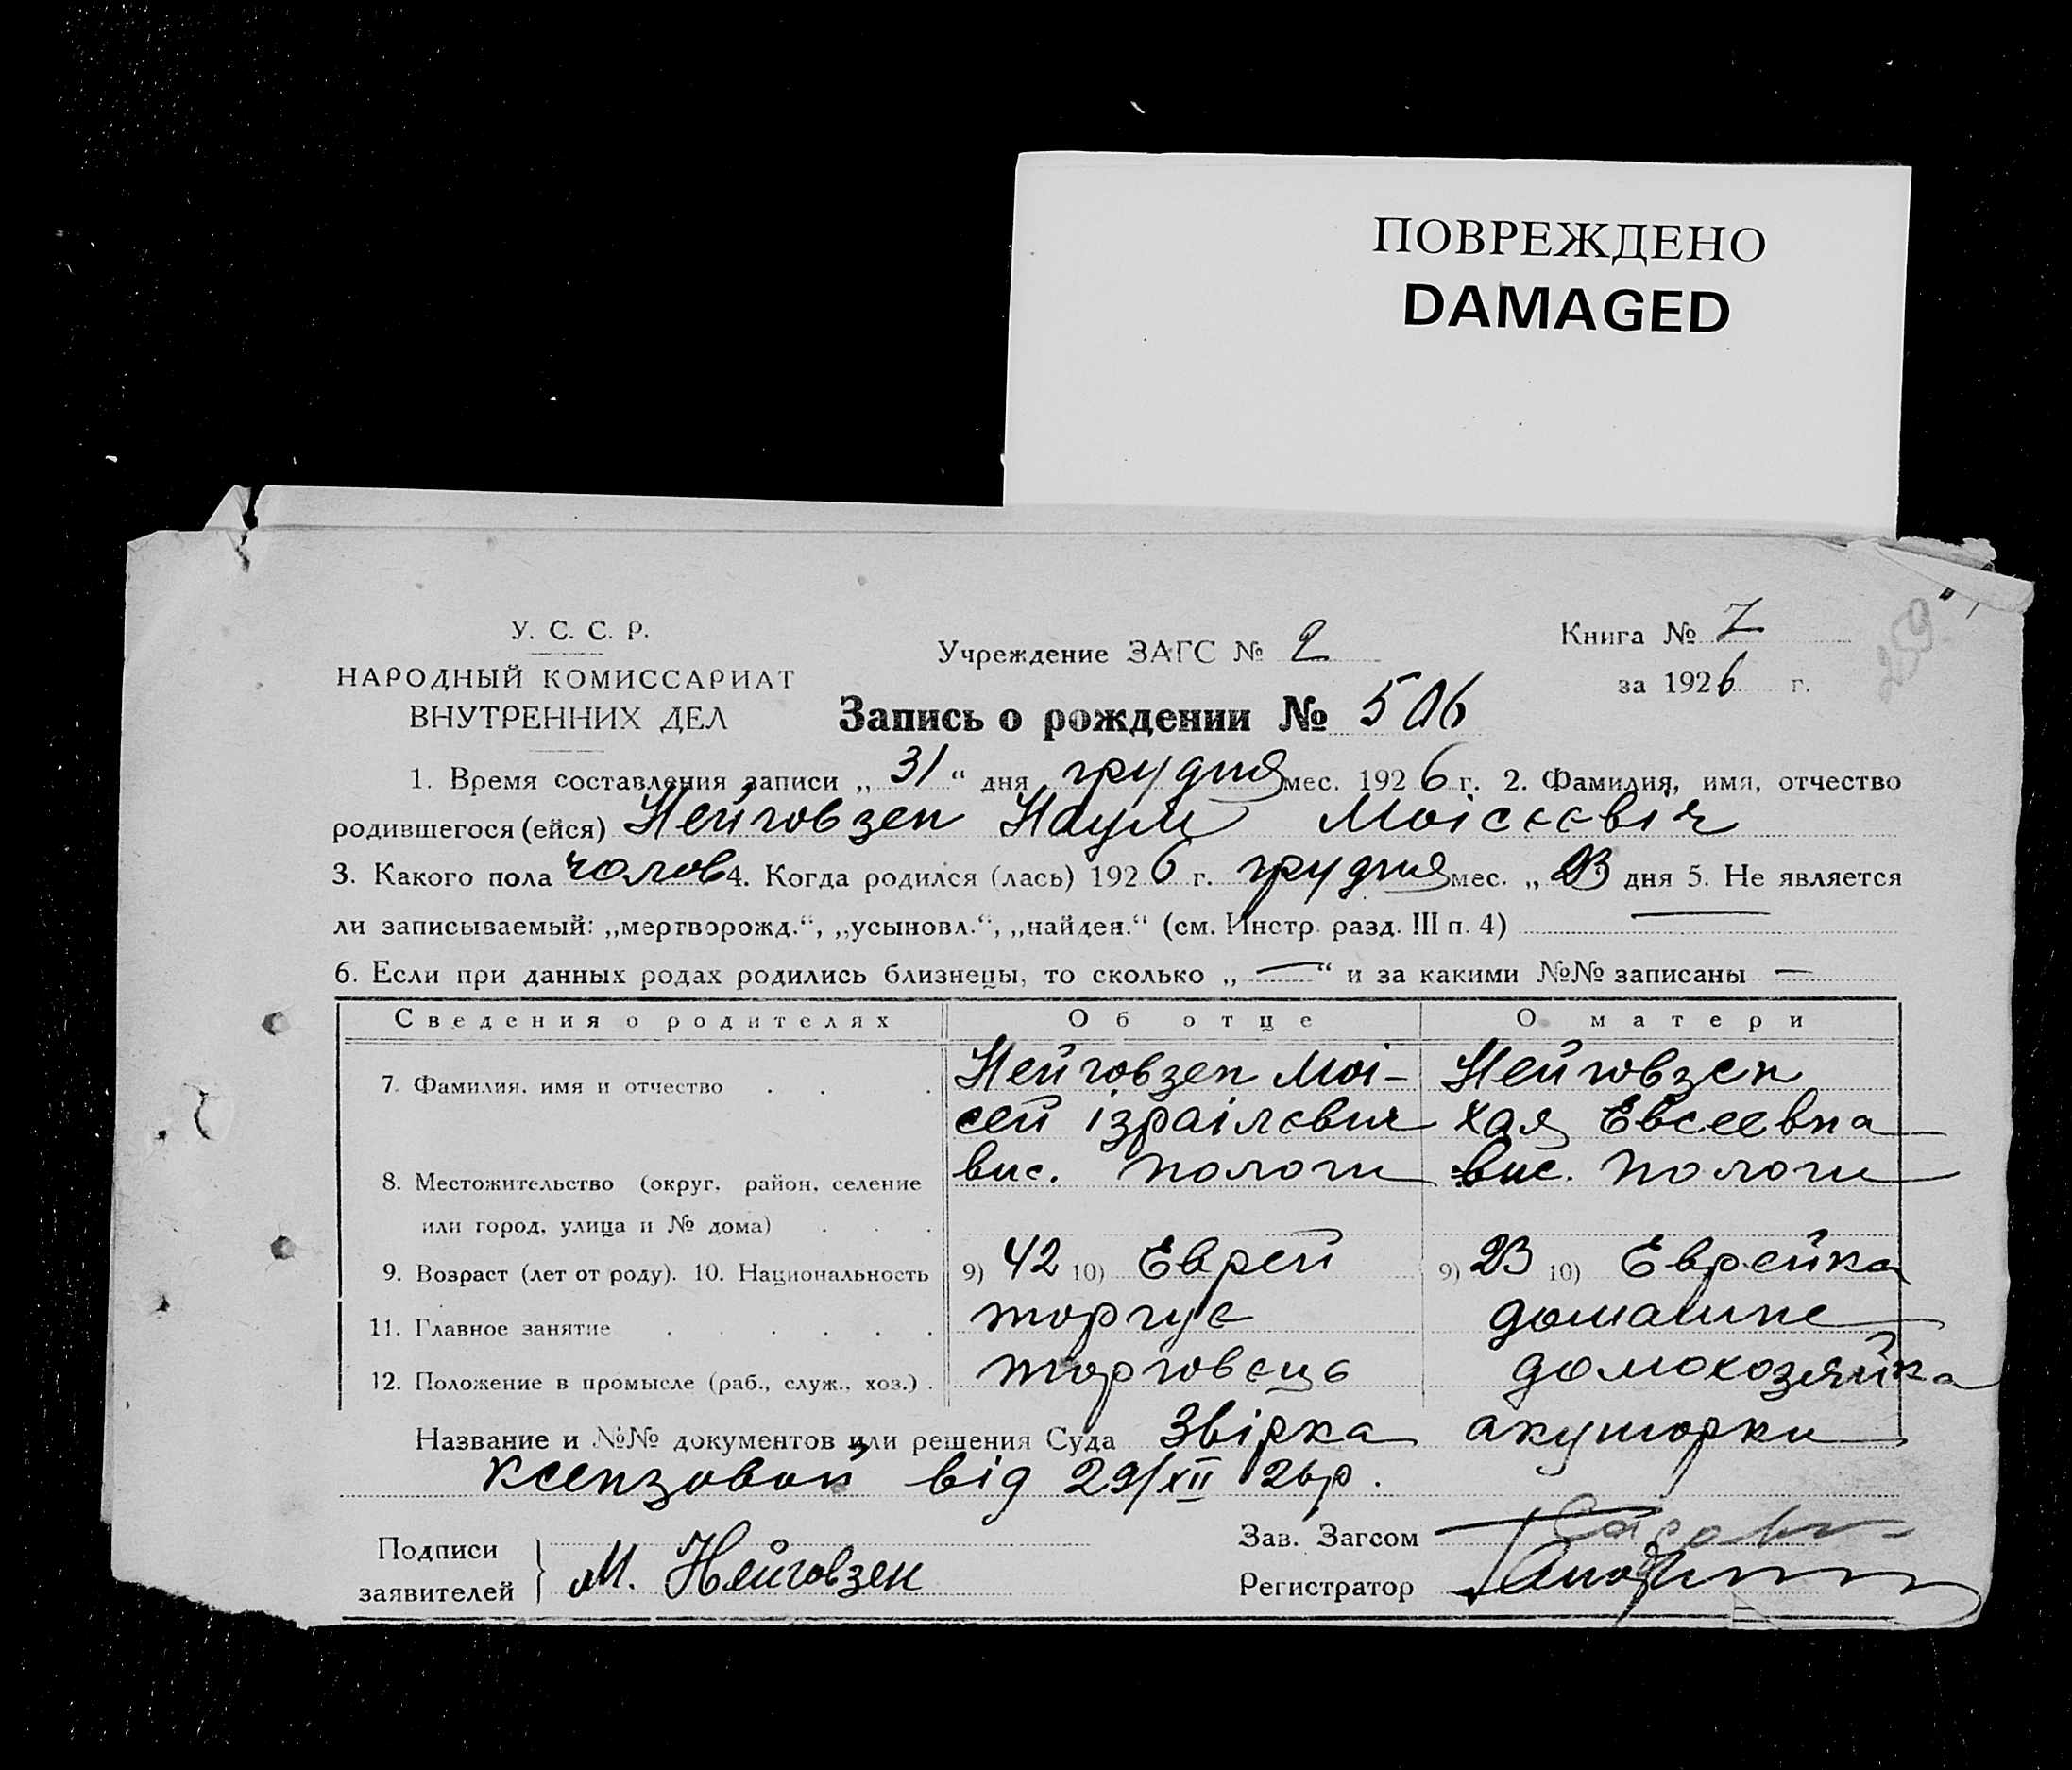 ПОВРЕЖДЕНО
DAMAGED
259
У. С. С. Р.
НАРОДНЫЙ КОМИССАРИАТ
ВНУТРЕННИХ ДЕЛ
Учреждение ЗАГС № 2
Книга № 7
за 1926 г.
Запись о рождении № 506
1. Время составления записи „ 31 “ дня грудня мес. 1926 г. 2. Фамилия, имя, отчество
родившегося (ейся) Нейговзен Наум Моісєєвіч
3. Какого пола чолов 4. Когда родился (лась) 1926 г. грудня мес. „ 23 дня 5. Не является
ли записываемый: „мертворожд.“, „усыновл.“, „найден.“ (см. Инстр. разд. III п. 4) —
6. Если при данных родах родились близнецы, то сколько „ — “ и за какими №№ записаны —
Сведения о родителях Об отце О матери
7. Фамилия, имя и отчество . . . Нейговзен Мои- Нейговзен
сей ізраілєвич Хая Евсеевна
8. Местожительство (округ, район, селение вис. Пологи вис. Пологи
или город, улица и № дома) . . .
9. Возраст (лет от роду). 10. Национальность 9) 42 10) Еврей 9) 23 10) Еврейка
11. Главное занятие . . . . . . торгує домашне
12. Положение в промысле (раб., служ., хоз.) . торговець домохозяйка
Название и №№ документов или решения Суда Звірка акушорки
Ксензовой від 29/XII 26р.
Подписи
заявителей } М. Нейговзен
Зав. Загсом
Регистратор